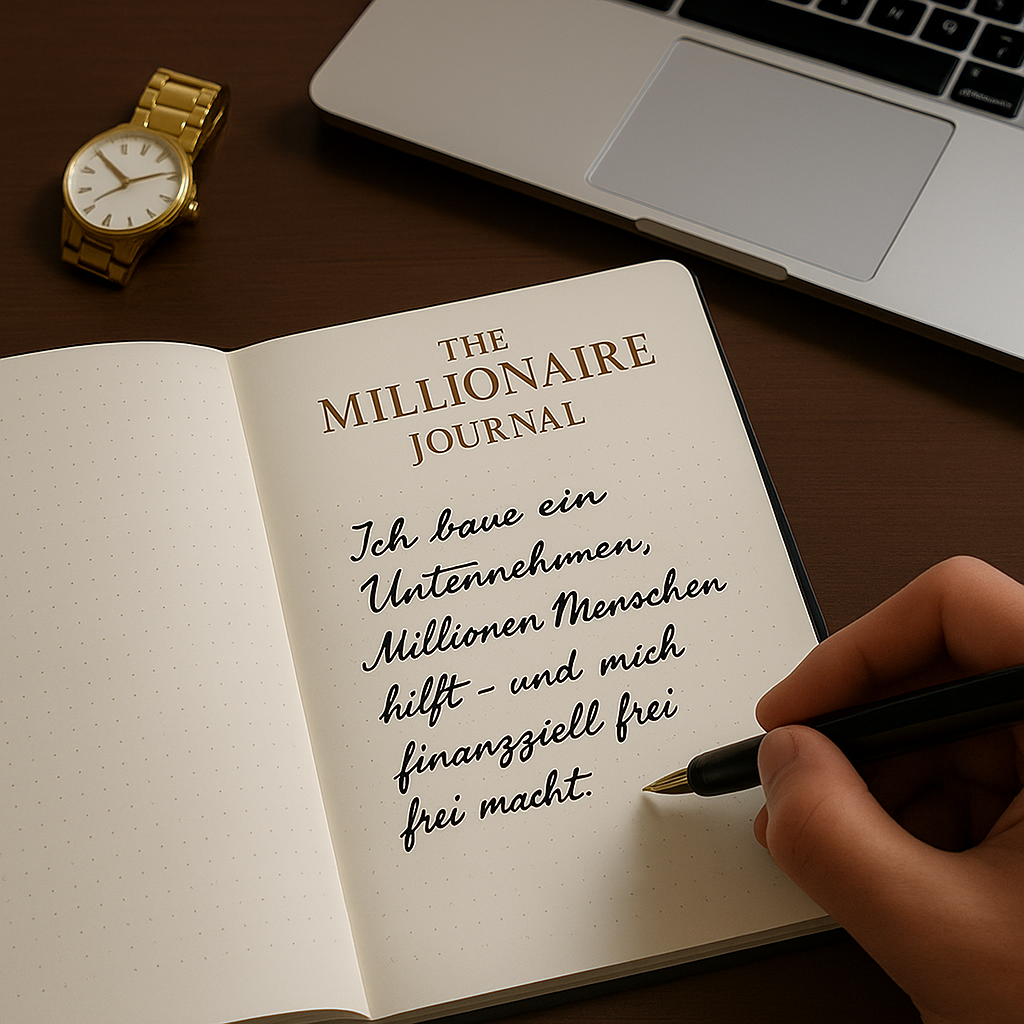 THE
MILLIONAIRE
JOURNAL
Ich baue ein
Unternnehmen,
Millionen Menschen
hilft – und mich
finanzziell frei
frei macht.